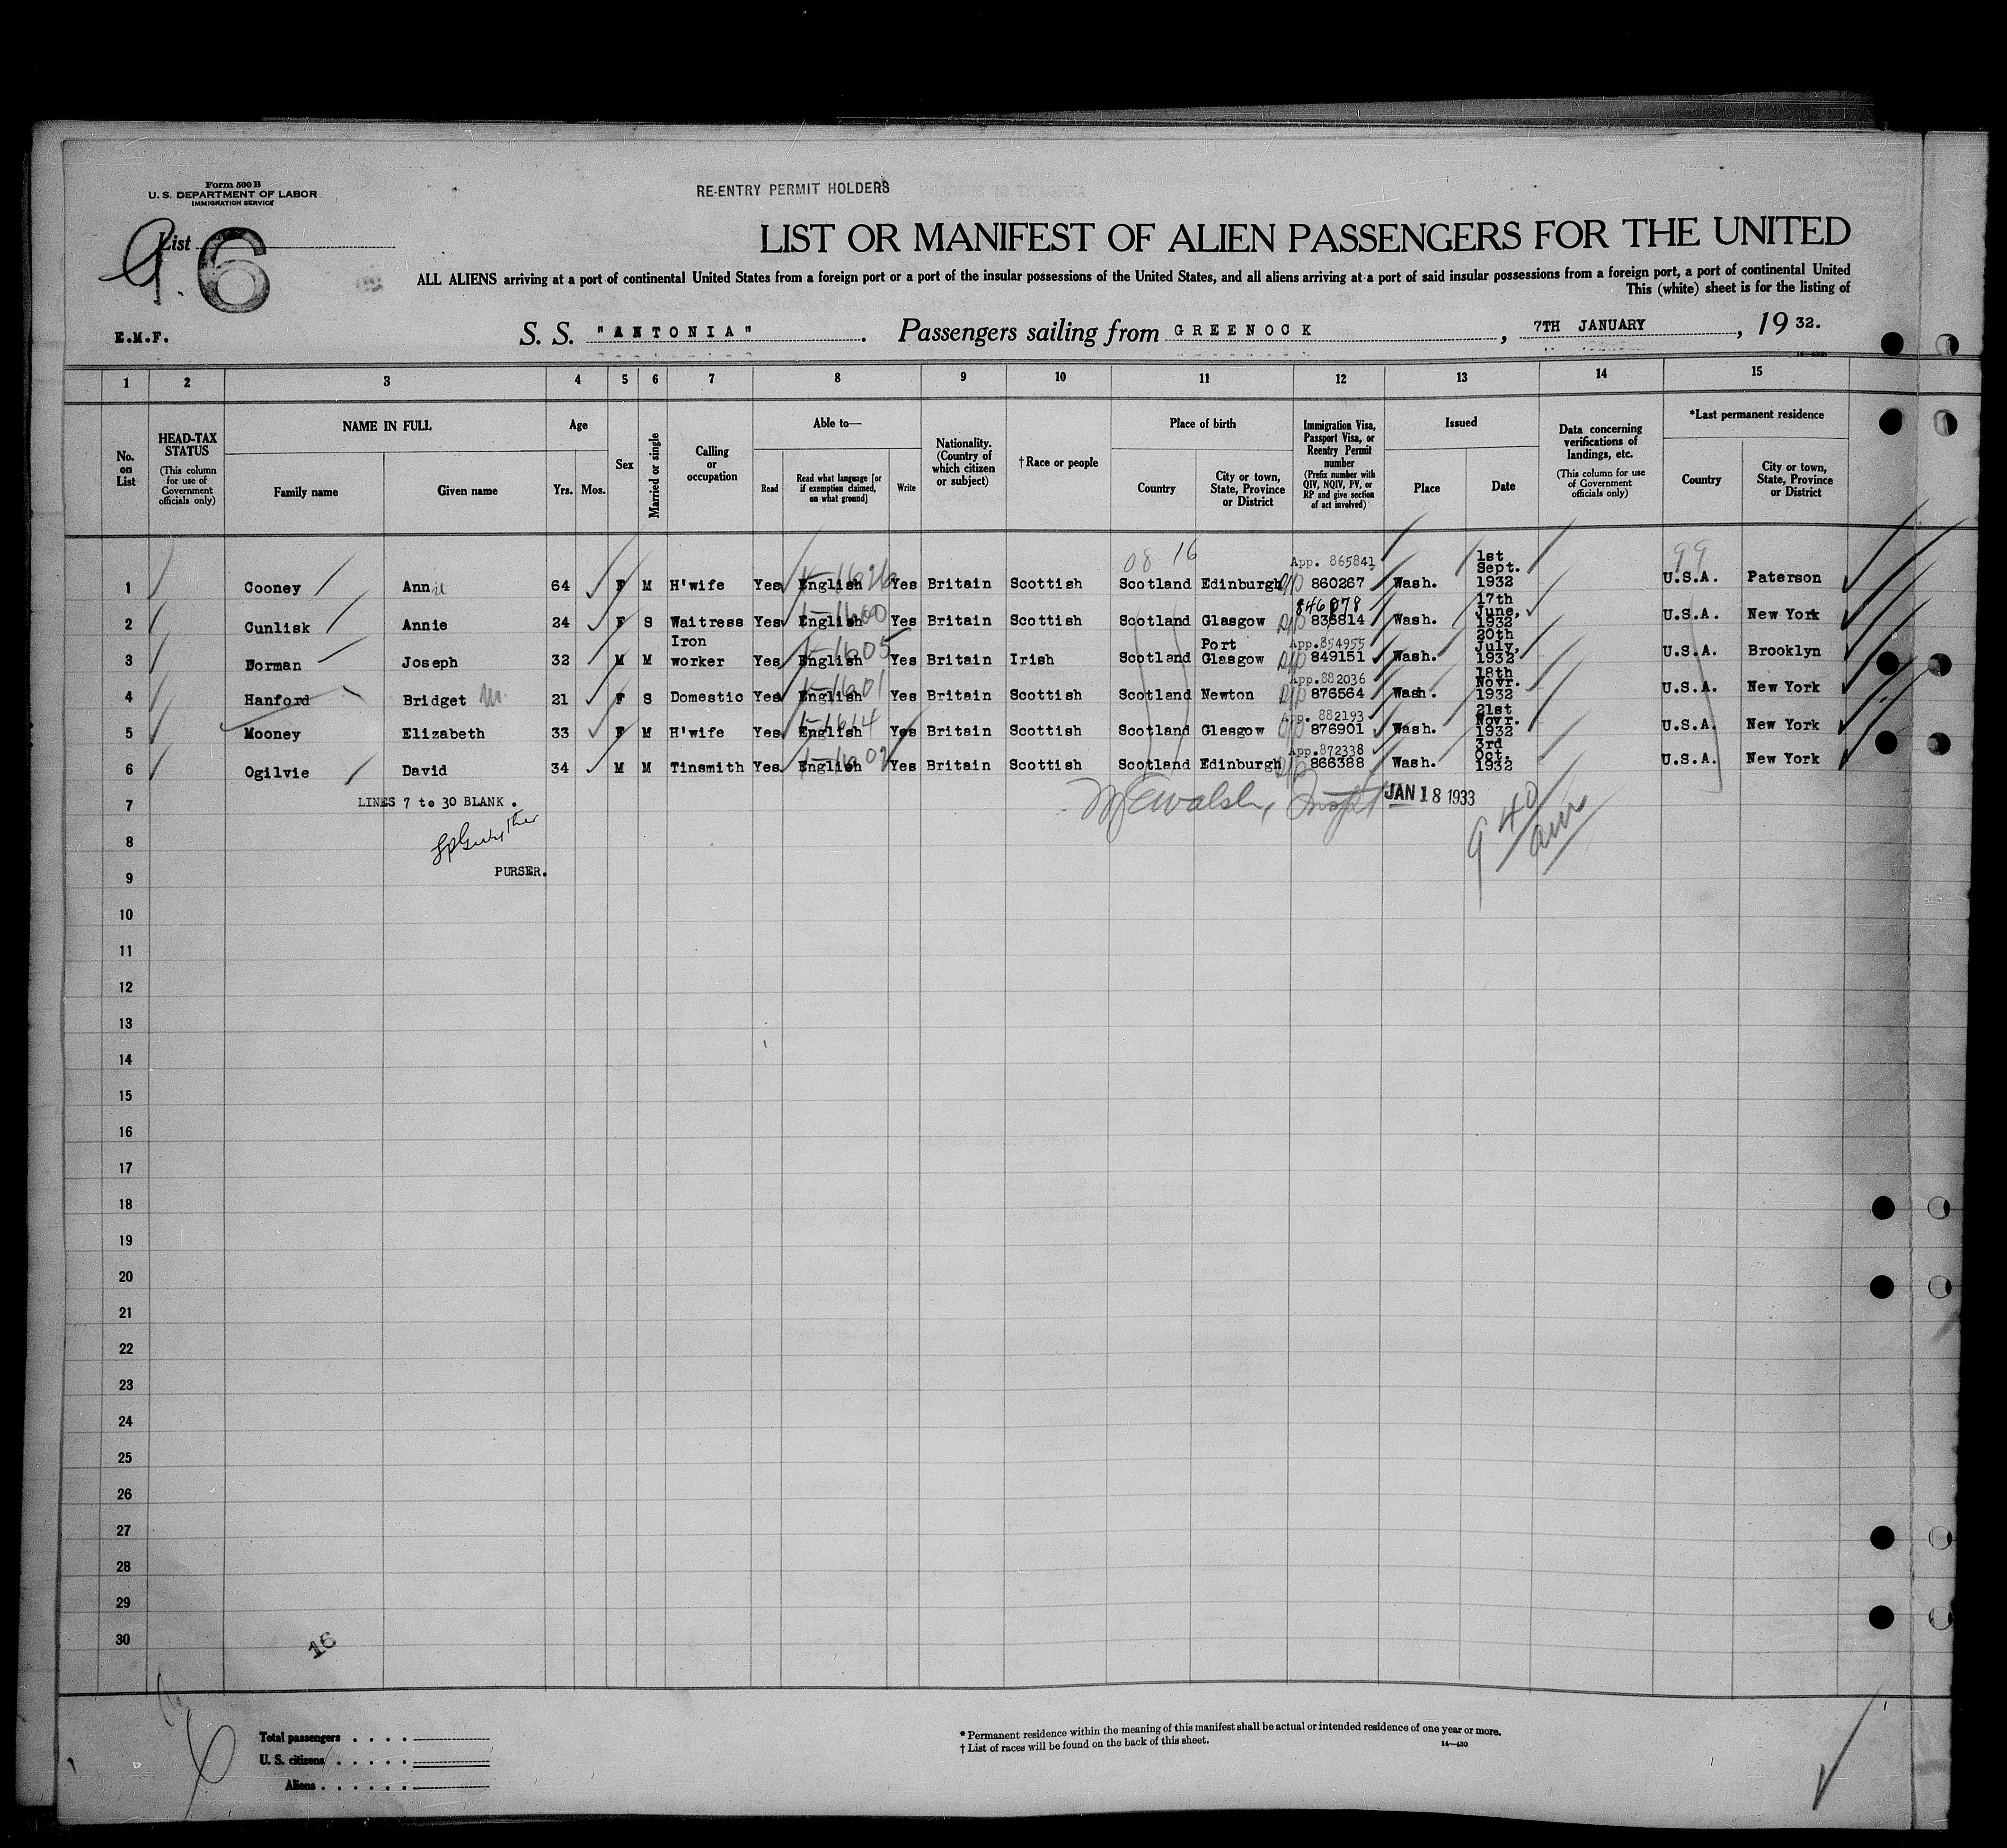 Form 500 B
U. S. DEPARTMENT OF LABOR
IMMIGRATION SERVICE
RE-ENTRY PERMIT HOLDERS
List 6
LIST OR MANIFEST OF ALIEN PASSENGERS FOR THE UNITED
ALL ALIENS arriving at a port of continental United States from a foreign port or a port of the insular possessions of the United States, and all aliens arriving at a port of said insular possessions from a foreign port, a port of continental United
This (white) sheet is for the listing of
E.M.F.
S. S. "ANTONIA". Passengers sailing from GREENOCK, 7TH JANUARY, 19 32.
1 2 3 4 5 6 7 8 9 10 11 12 13 14 15
No. on List
HEAD-TAX STATUS (This column for use of Government officials only)
NAME IN FULL
Family name Given name
Age
Yrs. Mos.
Sex
Married or single
Calling or occupation
Able to—
Read
Read what language [or if exemption claimed, on what ground]
Write
Nationality. (Country of which citizen or subject)
†Race or people
Place of birth
Country City or town, State, Province or District
Immigration Visa, Passport Visa, or Reentry Permit number (Prefix number with QIV, NQIV, PV, or RP and give section of act involved)
Issued
Place Date
Data concerning verifications of landings, etc. (This column for use of Government officials only)
*Last permanent residence
Country City or town, State, Province or District
08 16 App. 865841 1st Sept. 99
1 Cooney Annie 64 F M H'wife Yes English Yes Britain Scottish Scotland Edinburgh 860267 Wash. 1932 U.S.A. Paterson
846078 17th June,
2 Cunlisk Annie 24 F S Waitress Yes English Yes Britain Scottish Scotland Glasgow 835814 Wash. 1932 U.S.A. New York
Iron Port App.854955 20th July,
3 Dorman Joseph 32 M M worker Yes English Yes Britain Irish Scotland Glasgow 849151 Wash. 1932 U.S.A. Brooklyn
App.882036 18th Novr.
4 Hanford Bridget M. 21 F S Domestic Yes English Yes Britain Scottish Scotland Newton 876564 Wash. 1932 U.S.A. New York
App. 882193 21st Novr.
5 Mooney Elizabeth 33 F M H'wife Yes English Yes Britain Scottish Scotland Glasgow 876901 Wash. 1932 U.S.A. New York
App.872338 3rd Oct.
6 Ogilvie David 34 M M Tinsmith Yes English Yes Britain Scottish Scotland Edinburgh 866388 Wash. 1932 U.S.A. New York
7 LINES 7 to 30 BLANK. Walsh, JAN 18 1933
8 9 40 am
9 PURSER.
10
11
12
13
14
15
16
17
18
19
20
21
22
23
24
25
26
27
28
29
30
16
Total passengers
U. S. citizens
Aliens
* Permanent residence within the meaning of this manifest shall be actual or intended residence of one year or more.
† List of races will be found on the back of this sheet.
14—430